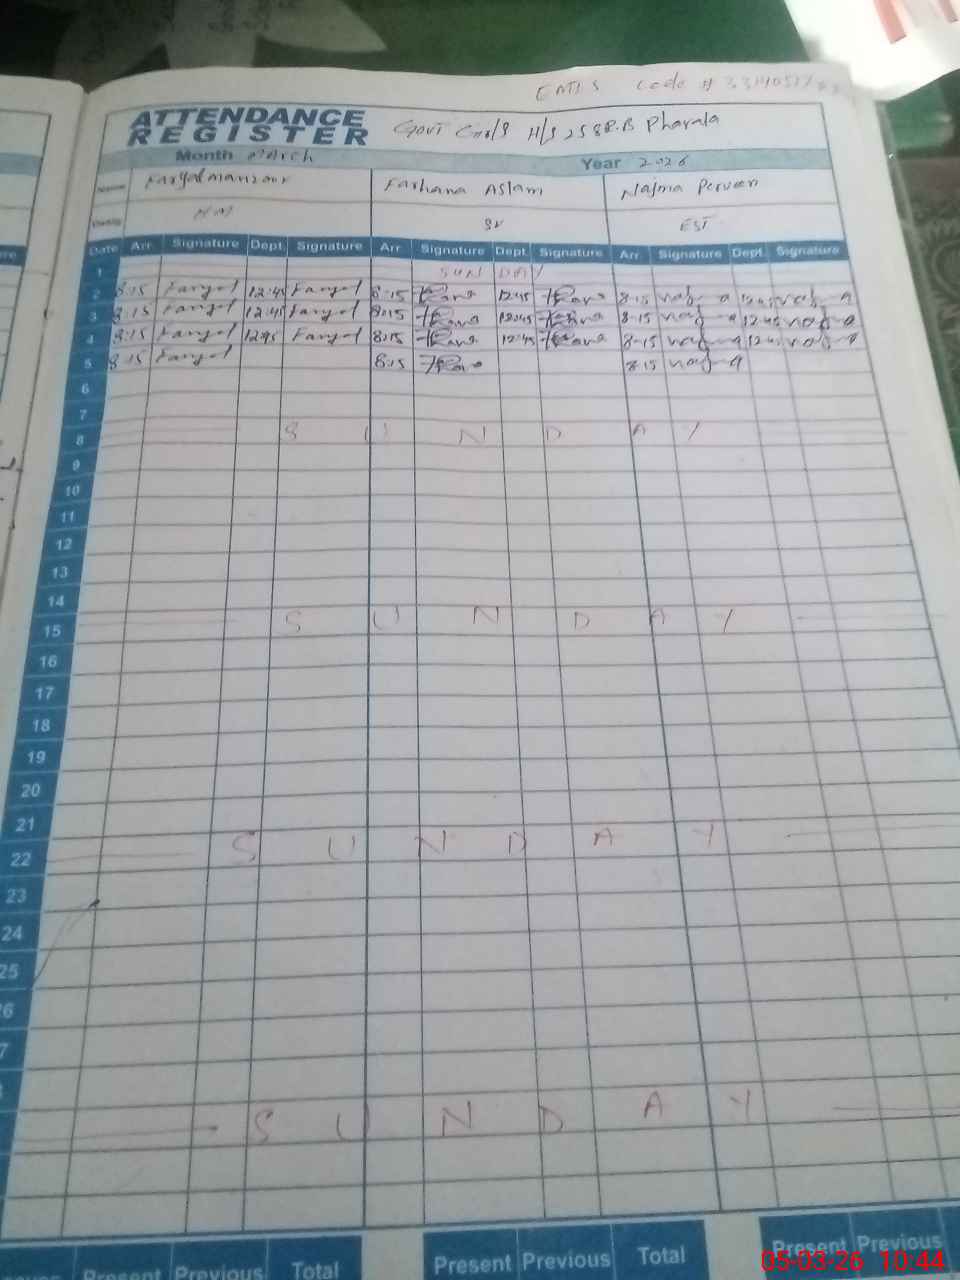 EMIS Code #
ATTENDANCE
REGISTER
Govt Girls H/S 258 R.B Pharala
Month March Year 2026
Name Faryal manzoor Farhana Aslam Najma Perveen
HM SV EST
Date Arr. Signature Dept. Signature Arr. Signature Dept. Signature Arr. Signature Dept. Signature
1 SUNDAY
2 8:15 Faryal 12:45 Faryal 8:15 12:45 8-15 12:45
3 8:15 Faryal 12:45 Faryal 8:15 12:45 8-15 12:45
4 8:15 Faryal 12:45 Faryal 8:15 12:45 8-15 12:45
5 8:15 Faryal 8:15 8-15
6
7
8 SUNDAY
9
10
11
12
13
14
15 SUNDAY
16
17
18
19
20
21
22 SUNDAY
23
24
25
6
7
SUNDAY
Present Previous Total Present Previous Total Present Previous
05-03-26 10:44